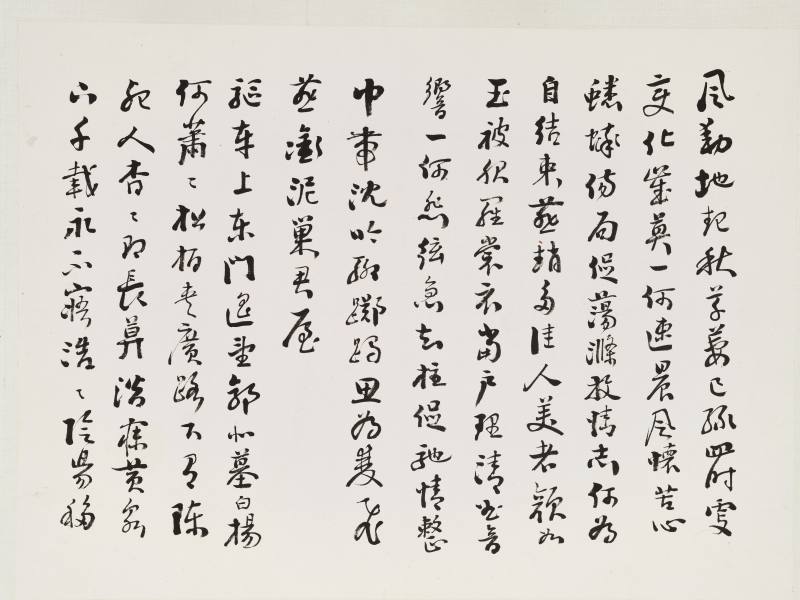 風動地起秋草萋已綠四時更
變化歲莫一何速晨風懷苦心
蟋蟀傷局促蕩滌放情志何為
自結束燕趙多佳人美者顏如
玉被服羅裳衣當戶理清曲音
響一何悲弦急知柱促馳情整
巾帶沈吟聊躑躅思為雙飛
燕銜泥巢君屋
驅車上東門遙望郭北墓白楊
何蕭〻松柏夾廣路下有陳
死人杳〻即長暮潛寐黃泉
下千載永不寤浩〻陰陽移